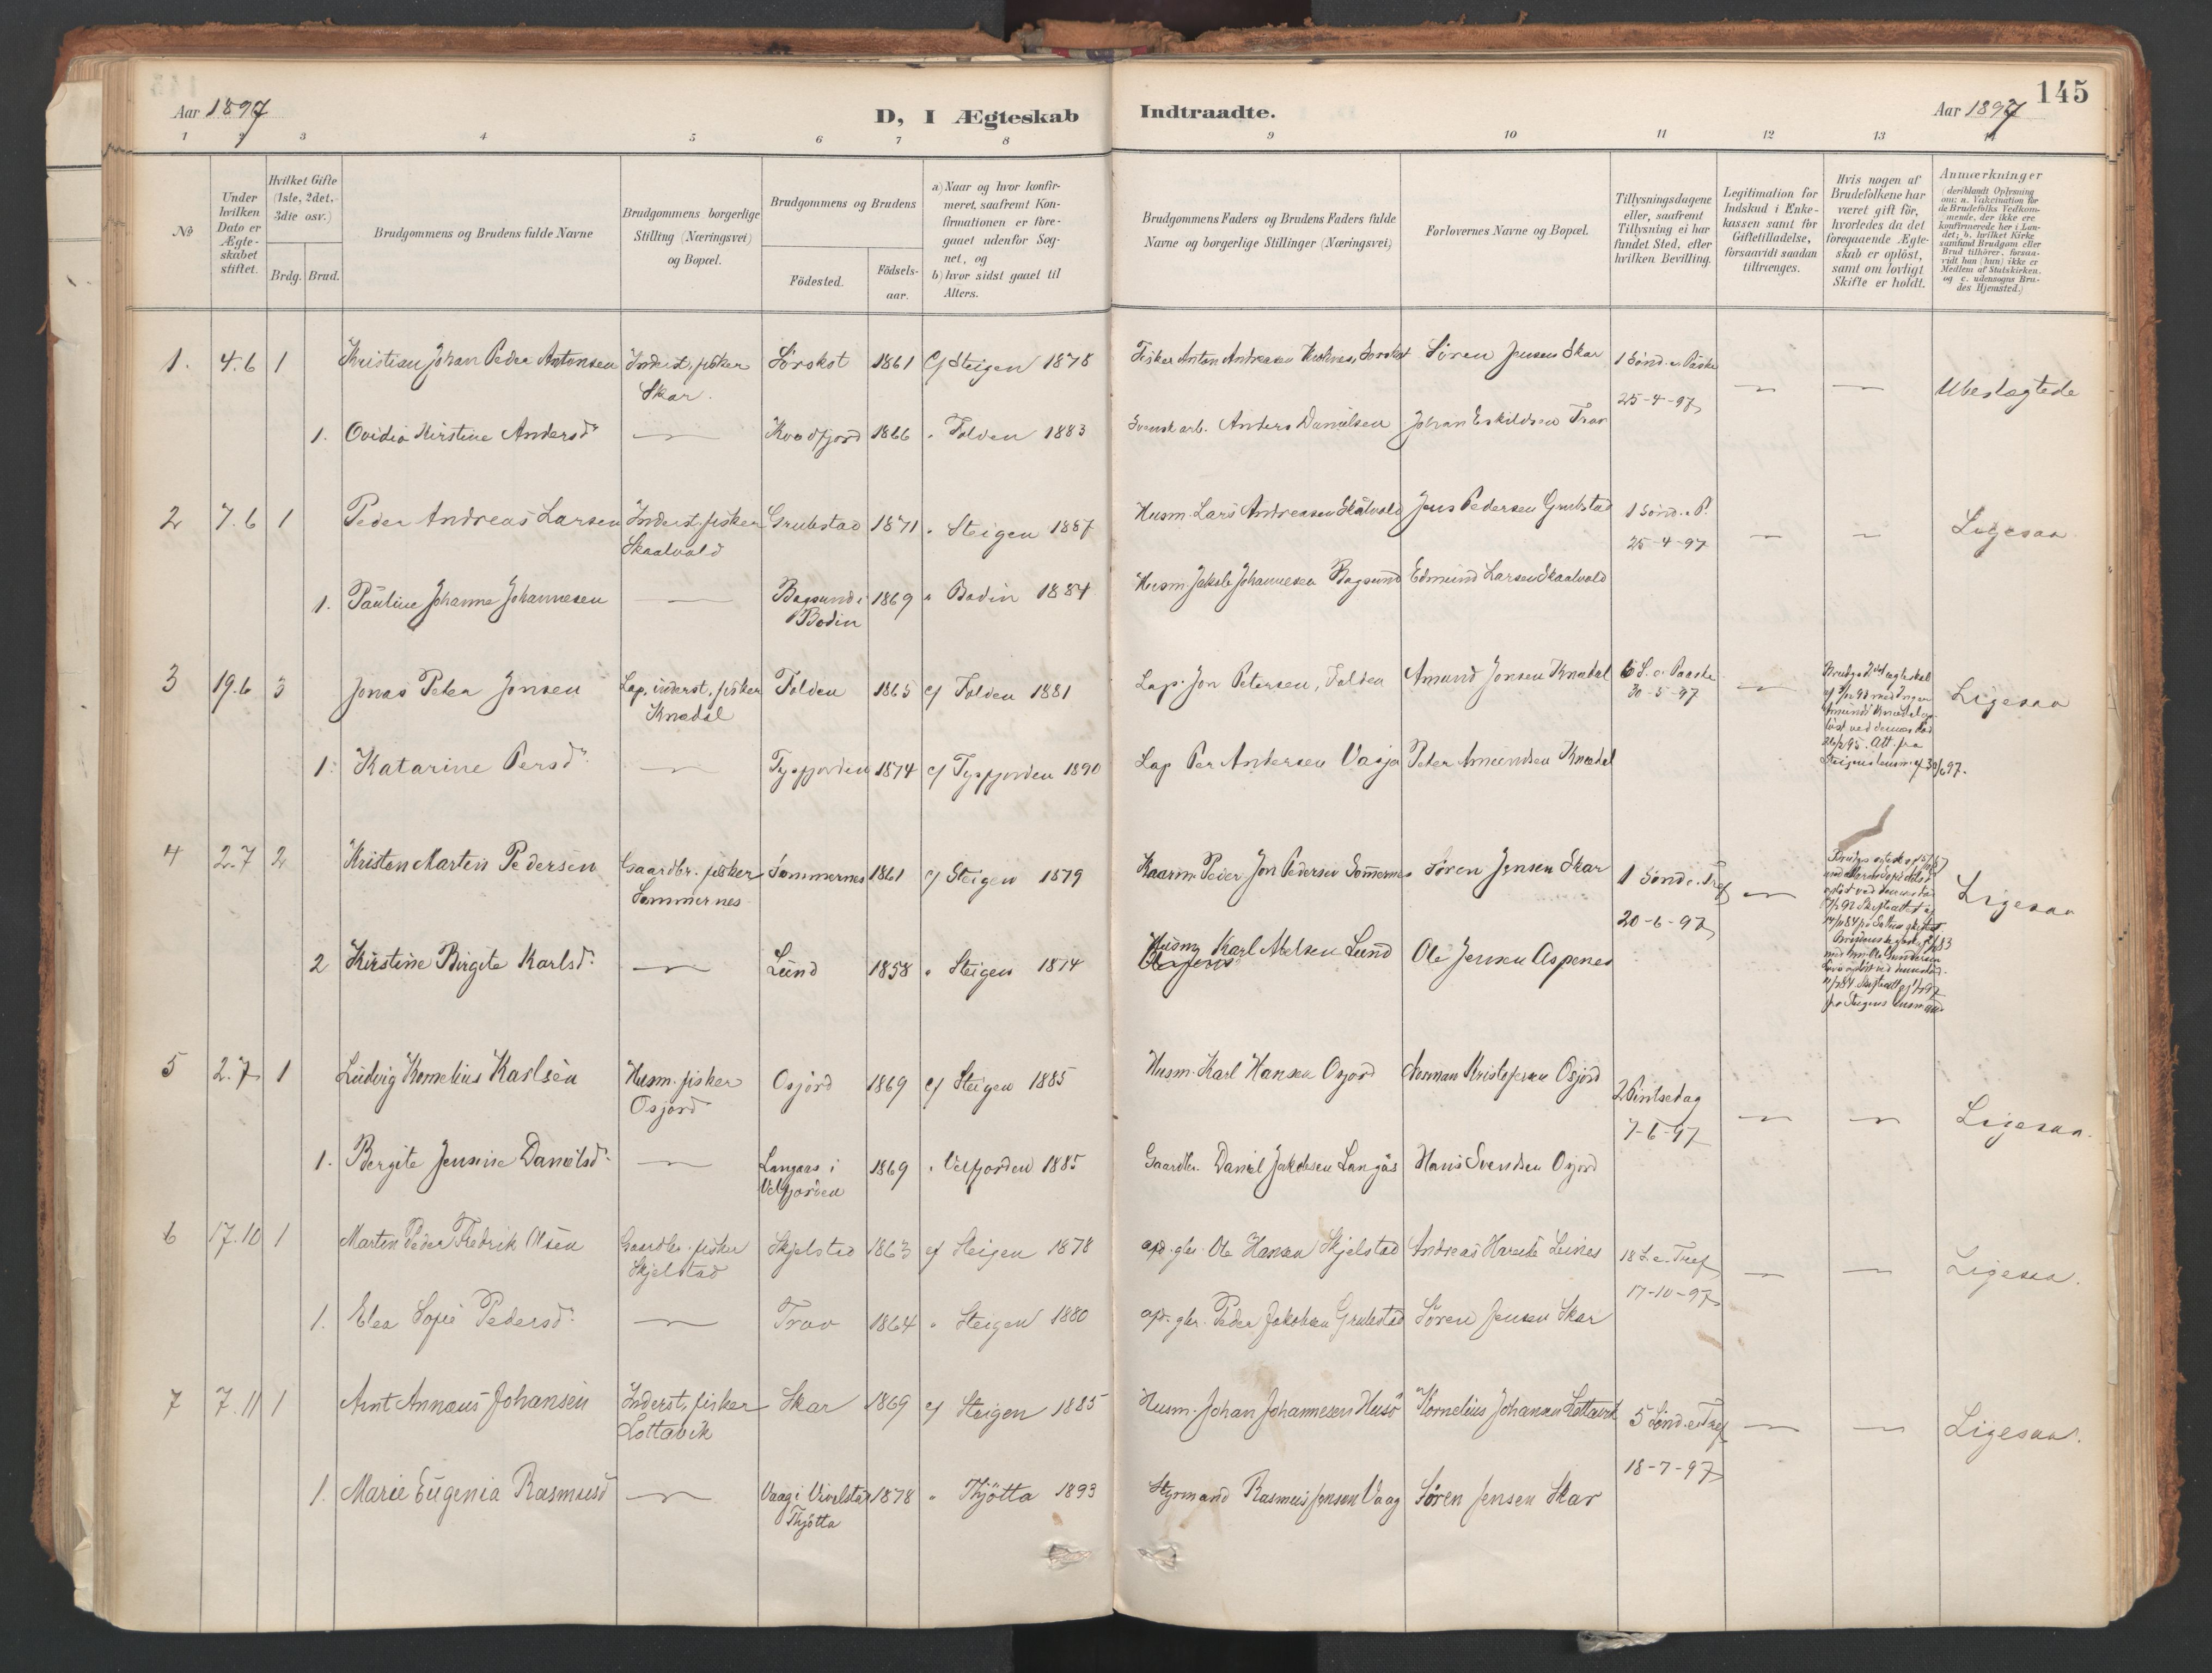 145
Aar 1897
D, I Ægteskab
Indtraadte.
Aar 1897
1 2 3 4 5 6 7 8 9 10 11 12 13 14
№
Under hvilken Dato er Ægteskabet stiftet.
Hvilket Gifte (1ste, 2det, 3die osv.)
Brdg. Brud.
Brudgommens og Brudens fulde Navne
Brudgommens borgerlige Stilling (Næringsvei) og Bopæl.
Brudgommens og Brudens
Födested.
Födsels-aar.
a) Naar og hvor konfirmeret, saafremt Konfirmationen er foregaaet udenfor Sognet, og
b) hvor sidst gaaet til Alters.
Brudgommens Faders og Brudens Faders fulde Navne og borgerlige Stillinger (Næringsvei)
Forlovernes Navne og Bopæl.
Tillysningsdagene eller, saafremt Tillysning ei har fundet Sted, efter hvilken Bevilling.
Legitimation for Indskud i Enkekassen samt for Giftetilladelse, forsaavidt saadan tiltrænges.
Hvis nogen af Brudefolkene har været gift för, hvorledes da det foregaaende Ægteskab er oplöst, samt om lovligt Skifte er holdt.
Anmærkninger
(deriblandt Oplysning om: a. Vakcination for de Brudefolks Vedkommende, der ikke ere konfirmerede her i Landet; b. hvilket Kirkesamfund Brudgom eller Brud tilhörer, forsaavidt han (hun) ikke er Medlem af Statskirken. og c. udensogns Brudes Hjemsted.)
1. 4.6 1 Kristian Johan Peder Antonsen Inderst, fisker Sørskot 1861 c/ Steigen 1878 Fisker Anton Andreasen Sørskot Søren Jensen Skar 1 Sønd. e. Paaske
Skar. 25-4-97 Ubeslægtede
1. Ovidia Kirstine Andersd. Kvædfjord 1866 " Folden 1883 Svensk arb. Anders Danielsen Johan Eskildsen Trav
2 7.6 1 Peder Andreas Larsen Inderst, fisker Grubstad 1871 " Steigen 1887 Husm. Lars Andreasen Skålvold Jens Pedersen Grubstad 1 Sønd. e. P.
Skaalvold 25-4-97 Ligesaa
1. Pauline Johanne Johannesen Bagsund i 1869 " Bodin 1884 Husm. Jakob Johannesen Bagsund Edmund Larsen Skaalvold
Bodin
3 19.6 3 Jonas Peter Jonsen Lap, inderst, fisker Folden 1865 c/ Folden 1881 Lap. Jon Petersen, Folden Amund Jonsen Knædal 6 S. e. Paaske
Knædal 30-5-97 Ligesaa
1. Katarine Persd. Tysfjorden 1874 c/ Tysfjorden 1890 Lap Per Andersen Vasja Peter Amundsen Knædal
4 2.7 2 Kristen Martin Pedersen Gaardbr. fisker Sommernes 1861 c/ Steigen 1879 Kaarm. Peder Jon Pedersen Sommernes Søren Jensen Skar 1 Sønd e. Tref
Sommernes 20-6-97 Ligesaa
2 Kirstine Birgite Karlsd. Lund 1858 " Steigen 1874 Husm Karl Abelsen Lund Ole Jensen Aspenes
5 2.7 1 Ludvig Kornelius Karlsen Husm. fisker Osjord 1869 c/ Steigen 1885 Husm. Karl Hansen Osjord Norman Kristofersen Osjord
Osjord 2 Pintsedag
7-6-97 Ligesaa.
1. Bergite Jensine Danielsd. Langaas i 1869 " Velfjorden 1885 Gaardbr. Daniel Jakobsen Langås Hans Svendsen Osjord
Velfjorden
6 17.10 1 Martin Peder Fredrik Olsen Gaardbr. fisker Skjelstad 1863 c/ Steigen 1878 opd. gbr. Ole Hansen Skjelstad Andreas Leines 18 S. e. Tref
Skjelstad 17-10-97 Ligesaa.
1. Elea Sofie Pedersd. Trav 1864 " Steigen 1880 opd. gbr. Peder Jakobsen Grubstad Søren Jensen Skar
7 7.11 1 Arnt Annæus Johansen Inderst, fisker Skar 1869 c/ Steigen 1885 Husm. Johan Johannesen Husø Kornelius Johansen Lottavik 5 Sønd. e. Tref
Lottavik 18-7-97 Ligesaa.
1. Marie Eugenia Rasmusd Vaag i Vivelstad 1878 " Thjøtta 1893 Styrmand Rasmus Jensen Vaag Søren Jensen Skar
Thjøtta